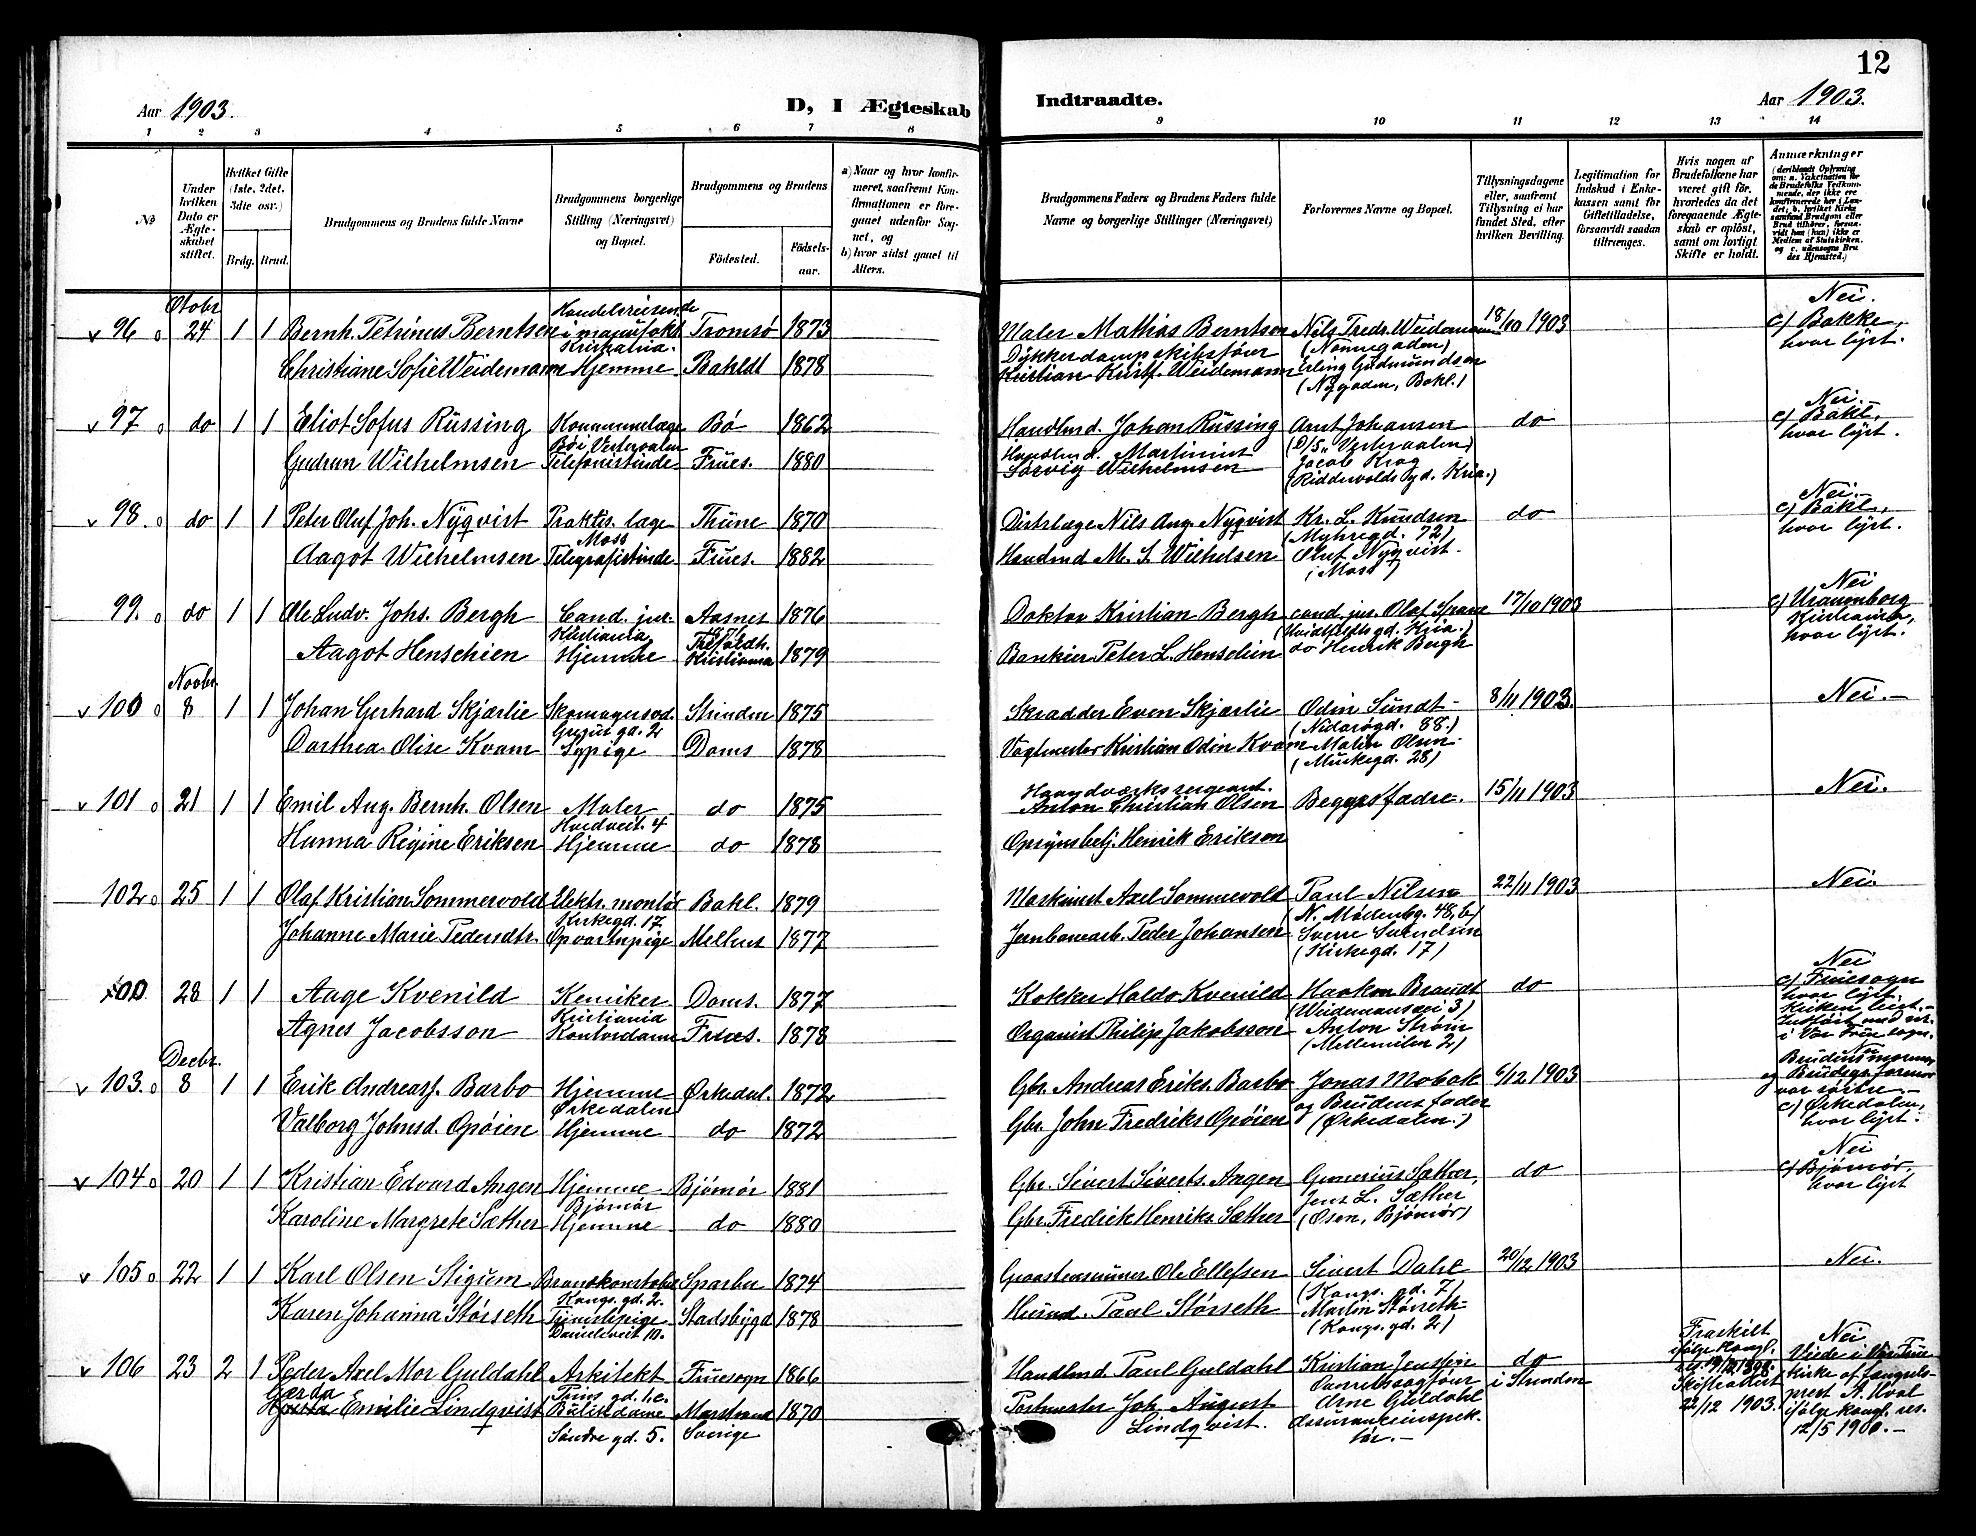 12
Aar 1903.
D, I Ægteskab Indtraadte.
Aar 1903.
1 2 3 4 5 6 7 8 9 10 11 12 13 14
No
Under hvilken Dato er Ægteskabet stiftet.
Hvilket Gifte (1ste, 2det, 3die osv.)
Brdg. Brud.
Brudgommens og Brudens fulde Navne
Brudgommens borgerlige Stilling (Næringsvei) og Bopæl.
Brudgommens og Brudens
Fødested.
Fødselsaar.
a) Naar og hvor konfirmeret, saafremt Konfirmationen er foregaaet udenfor Sognet, og
b) hvor sidst gaaet til Alters.
Brudgommens Faders og Brudens Faders fulde Navne og borgerlige Stillinger (Næringsvei)
Forlovernes Navne og Bopæl.
Tillysningsdagene eller, saafremt Tillysning ei har fundet Sted, efter hvilken Bevilling.
Legitimation for Indskud i Enkekassen samt for Giftetilladelse, forsaavidt saadan tiltrænges.
Hvis nogen af Brudefolkene har været gift før, hvorledes da det foregaaende Ægteskab er opløst, samt om lovligt Skifte er holdt.
Anmærkninger
Octobr
v 96 24 1 1 Bernh. Petrinus Berntsen Handelsreisende i manufakt. Kristiania. Tromsø 1873 Maler Mathias Berntsen Nils Fredr. Weidemann (Nonnegaden) 18/10 1903 Nei. c) Bakke, hvor lyst.
Christiane Sofie Weidemann Hjemme Bakldt 1878 Dykkerdampskibsfører Kristian Kristf. Weidemann Erling Gudmundsen (Nygaden, Bakl.)
v 97 do 1 1 Eliot Sofus Rüssing Kommunelæge Bø i Vesteraalen Bø 1862 Handlmd. Johan Rüssing Arnt Johansen (D/S "Vesteraalen) do Nei. c) Bakl, hvor lyst.
Gudrun Wilhelmsen Telefonistinde Frues. 1880 Handlmd. Martinius Sørvig Wilhelmsen Jacob Krag (Riddervolds gd. Kria.)
v 98. do 1 1 Peter Oluf Joh. Nyqvist Praktis. læge Moss Thüne 1870 Distrlæge Nils Aug. Nyqvist Kr. L. Knudsen (Myhregd. 72) do Nei. c) Bakl, hvor lyst.
Aagot Wilhelmsen Telegrafistinde Frues. 1882 Handmd M. S. Wilhelsen Oluf Nyqvist. i Moss)
99. do 1 1 Ole Ludv. Johs. Bergh Cand. jur. Kristiania Aasnes 1876 Doktor Kristian Bergh cand. jur. Olaf Spare 17/10 1903 Nei c) Uranienborg Kristiania, hvor lyst.
Aagot Henschien Hjemme Trefoldh. Kristiania 1879 Bankier Peter L. Henschien do Henrik Bergh
Novbr.
v 100 8 1 1 Johan Gerhard Skjærlie Skomagersvd. gd. 2 Strinden 1875 Skrædder Even Skjærlie Odin Sundt (Nidarøgd. 88.) 8/11 1903. Nei.
Dorthea Olise Kvam Sypige Doms 1878 Vagtmester Kristian Odin Kvam Malin Olsen. (Munkegd. 28)
v 101 21 1 1 Emil Aug. Bernh. Olsen Maler Hvedveit. 4 do 1875 Haandværkssergeant. Anton Christian Olsen Begges fædre. 15/11 1903 Nei.
Hanna Regine Eriksen Hjemme do 1878 Opsynsbetj. Henrik Eriksen
102 25 1 1 Olaf Kristian Sommervold Elektr. montør Kirkegd. 17 Bakl. 1879 Maskinist Axel Sommervold Paul Nilsen (N. Møllenbg. 48,b) 22/11 1903 Nei.
Johanne Marie Pedersdtr. Opvartnpige Melhus 1877 Jernbanearb. Peder Johansen Sverre Svendsen (Kirkegd. 17)
100. 28 1 1 Aage Kvenild Kemiker Kristiania Doms. 1877 Kokker Haldo Kvenild Haakon Brandt (Weidemansvei 3) do Nei c) Fruesogn hvor lyst.
Agnes Jacobsson Kontordame Frues. 1878 Organist Philip Jakobsson Anton Strøm (Mellemilen 2)
Decbr.
v 103. 8 1 1 Erik Andreasf. Barbo Hjemme Ørkedalen Ørkedal. 1872 Gbr. Andreas Eriks. Barbo Jonas Mobak og Brudens fader (Ørkedalen.) 6/12 1903 Nei Brudens mormor og Brudgs. farmor var søstre. c) Ørkedalen, hvor lyst.
Valborg Johnsd. Opøien Hjemme do 1872 Gbr. John Fredriks Opøien
v 104 20 1 1 Kristian Edvard Angen Hjemme Bjømør Bjømør 1881 Gbr. Sivert Siverts. Angen Gunerius Sæther, Jens L. Sæther (Osen, Bjømør) do Nei c) Bjømør, hvor lyst
Karoline Margrete Sæther Hjemme do 1880 Gbr. Fredrik Henriks. Sæther
v 105 22 1 1 Karl Olsen Stigum Brandkonstabel Kongs. gd. 2. Sparbu 1874 Ole Ellefsen Sivert Dahl (Kongs. gd. 7) 20/12 1903 Nei.
Karen Johanna Størseth Tjenestepige Danielsveit 10. Stadsbygd 1878 Husmd. Paul Størseth Martin Størseth (Kongs. gd. 2)
v 106 23 2 1 Peder Axel Mor Guldahl Arkitekt Fruesogn 1866 Handlmd Paul Guldahl Kristian Jenssen Overretssagfører Arne Guldahl assuranceinspektør. do i Strinden Fraskilt ifølge kongl. res. Skifteattest 22/12 1903. Nei Viede i Vor Frue kirke af fængselsprest A. Hval ifølge kongl. res. 12/5 1900.
Gerda Emilie Lindqvist Butikdame Søndre gd. 5. Marstrand Sverige 1870 Postmester Joh. August Lindqvist.